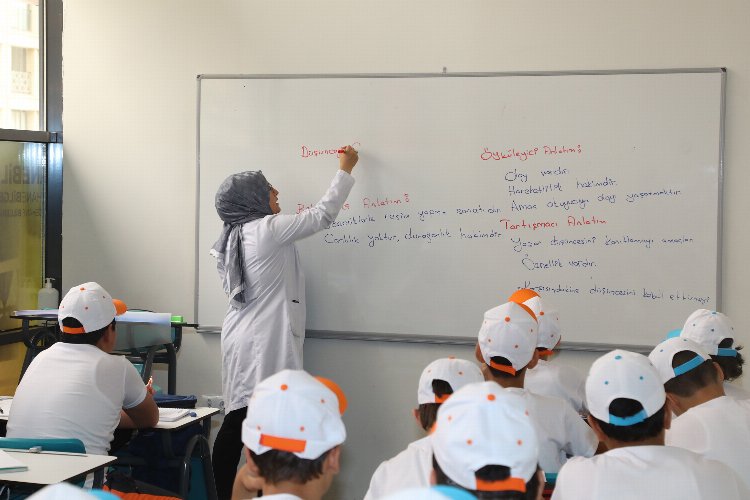 Düşünce
Anlatım:
sözcüklerle resim yazma sanatıdır.
Canlılık yoktur, durağanlık hakimdir.
Öyküleyici Anlatım:
Olay vardır.
Hareketlilik hakimdir.
Amaç okuyucuyu olay yaşatmaktır.
Tartışmacı Anlatım
Yazar düşüncesini kanıtlamayı amaçlar.
Öznellik vardır.
Karşısındakine düşüncesini kabul ettirmeyi
NEBİL